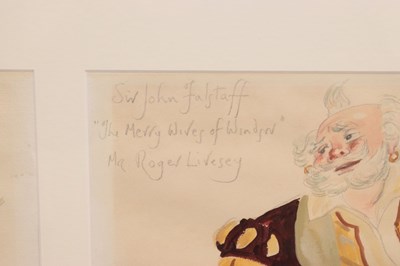 Sir John Falstaff
"The Merry Wives of Windsor"
Mr Roger Livesey